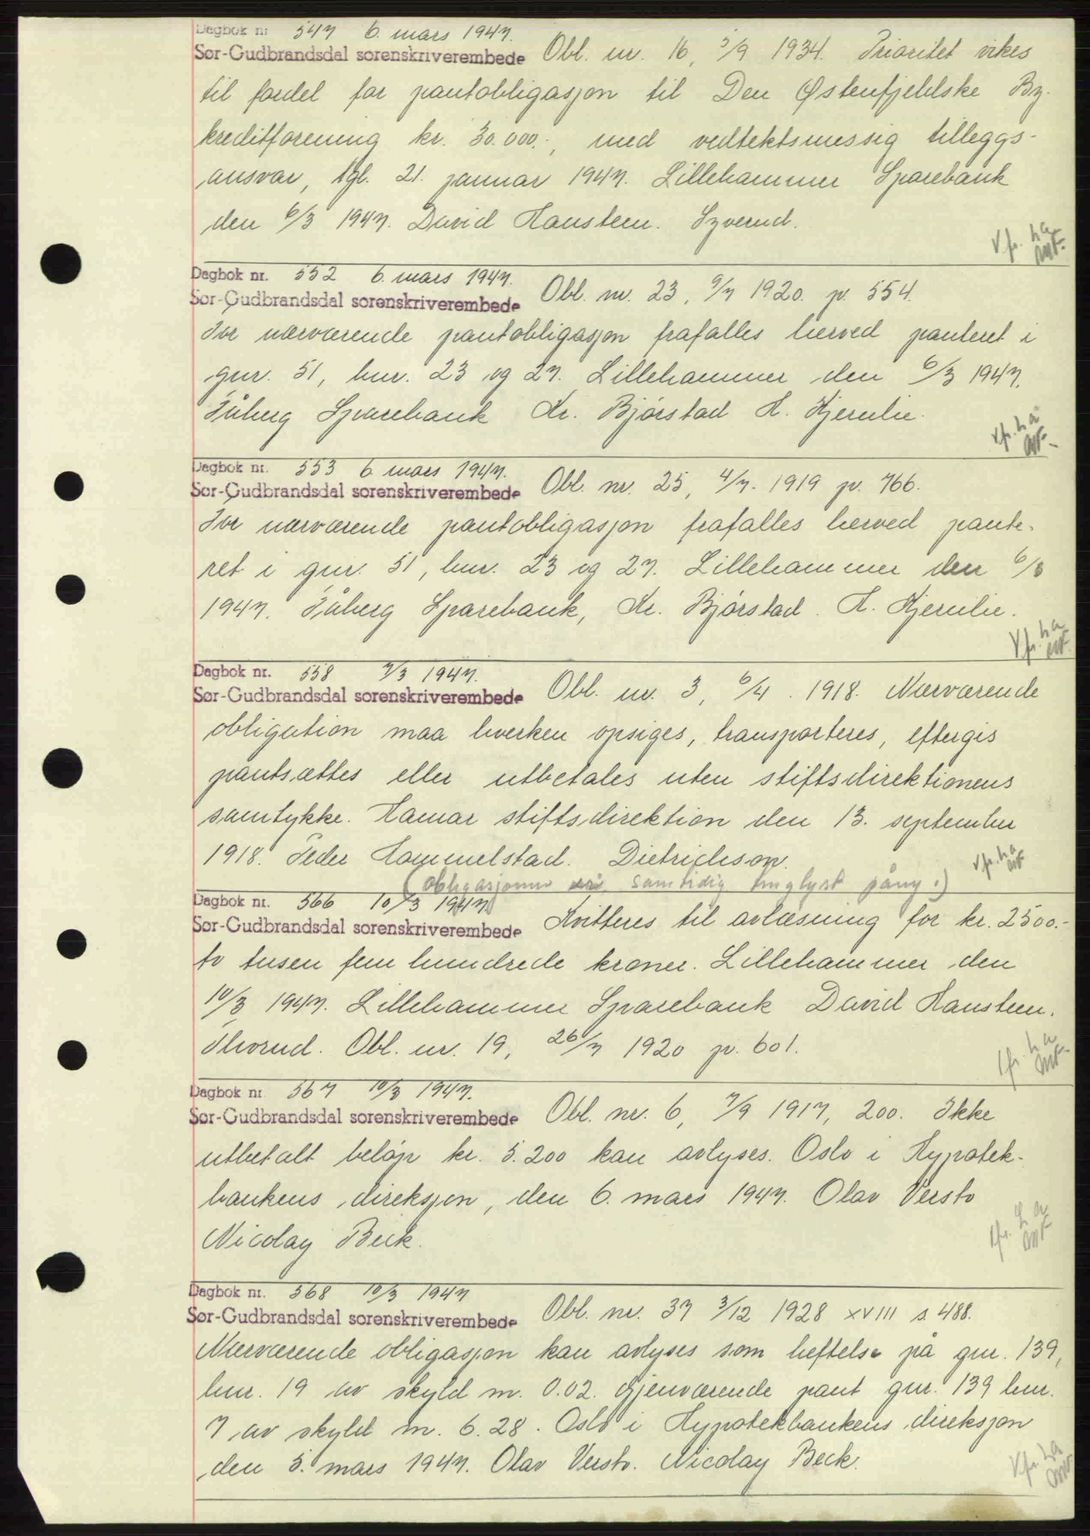 Dagbok nr. 547 6. mars 1947.
Sør-Gudbrandsdal sorenskriverembede Obl. nr. 16, 5/9 1934. Prioritet vikes
til fordel for pantobligasjon til Den Østenfjeldske By-
kreditforening kr. 30.000.-, med vedtektsmessig tilleggs-
ansvar, tgl. 21. januar 1947. Lillehammer Sparebank
den 6/3 1947. David Hansteen.
Dagbok nr. 552 6. mars 1947.
Sør-Gudbrandsdal sorenskriverembede Obl. nr. 23, 9/7 1920. pr. 554.
For nærværende pantobligasjon frafalles herved panteret i
gnr. 51, bnr. 23 og 27. Lillehammer den 6/3 1947.
Fåberg Sparebank Kr. Bjørstad H. Hjemlie.
Dagbok nr. 553 6. mars 1947.
Sør-Gudbrandsdal sorenskriverembede Obl. nr. 25, 4/7. 1919 pr. 766.
For nærværende pantobligasjon frafalles herved pante-
ret i gnr. 51, bnr. 23 og 27. Lillehammer den 6/3
1947. Fåberg Sparebank, Kr. Bjørstad. H. Hjemlie.
Dagbok nr. 558 7/3 1947.
Sør-Gudbrandsdal sorenskriverembede Obl. nr. 3, 6/4. 1918. Nærværende
obligation maa hverken opsiges, transporteres, eftergis
pantsættes eller utbetales uten stiftsdirektionens
samtykke. Hamar stiftsdirektion den 13. september
1918. Peder Hammelstad. Dietrichson.
(obligasjonen samtidig tinglyst påny.)
Dagbok nr. 566 10/3 1947
Sør-Gudbrandsdal sorenskriverembede Kvitteres til avlæsning for kr. 2500.-
to tusen fem hundrede kroner. Lillehammer den
10/3 1947. Lillehammer Sparebank David Hansteen.
Obl. nr. 19, 26/7 1920 pr. 601.
Dagbok nr. 567 10/3 1947.
Sør-Gudbrandsdal sorenskriverembede Obl. nr. 6, 7/9 1917, 200. Ikke
utbetalt beløp kr. 5.200 kan avlyses. Oslo i Hypotek-
bankens direksjon, den 6. mars 1947. Olav Versto
Nicolay Beck.
Dagbok nr. 568 10/3 1947
Sør-Gudbrandsdal sorenskriverembede Obl. nr. 37 3/12 1928 XVIII s 488.
Nærværende obligasjon kan avlyses som heftelse på gnr. 139,
bnr. 19 av skyld m. 0.02. Gjenværende pant gnr. 139 bnr.
7 av skyld m. 6.28. Oslo i Hypotekbankens direksjon
den 5. mars 1947. Olav Versto. Nicolay Beck.